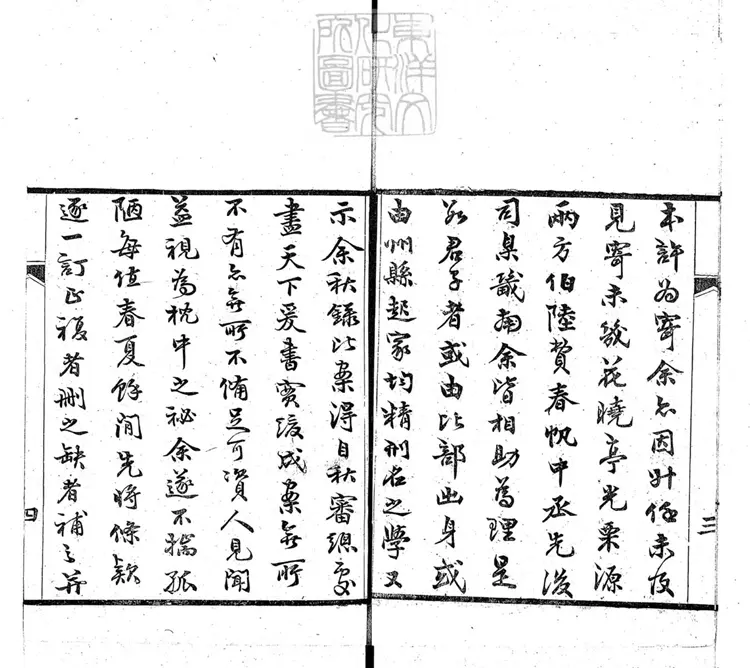 東洋文
化研究
所圖書
三
本許為寄余忽因升任未及
見寄未幾花曉亭光栗源
兩方伯陸費春帆中丞先後
司臬畿南余皆相助為理是
數君子者或由比部出身或
由州縣起家均精刑名之學又
示余秋錄比案得自秋審總處
盡天下爰書實緩成案無所
不有亦無所不備足可資人見聞
益視為枕中之祕余遂不揣孤
陋每值春夏餘閒先將條款
逐一訂正複者刪之缺者補之并
四